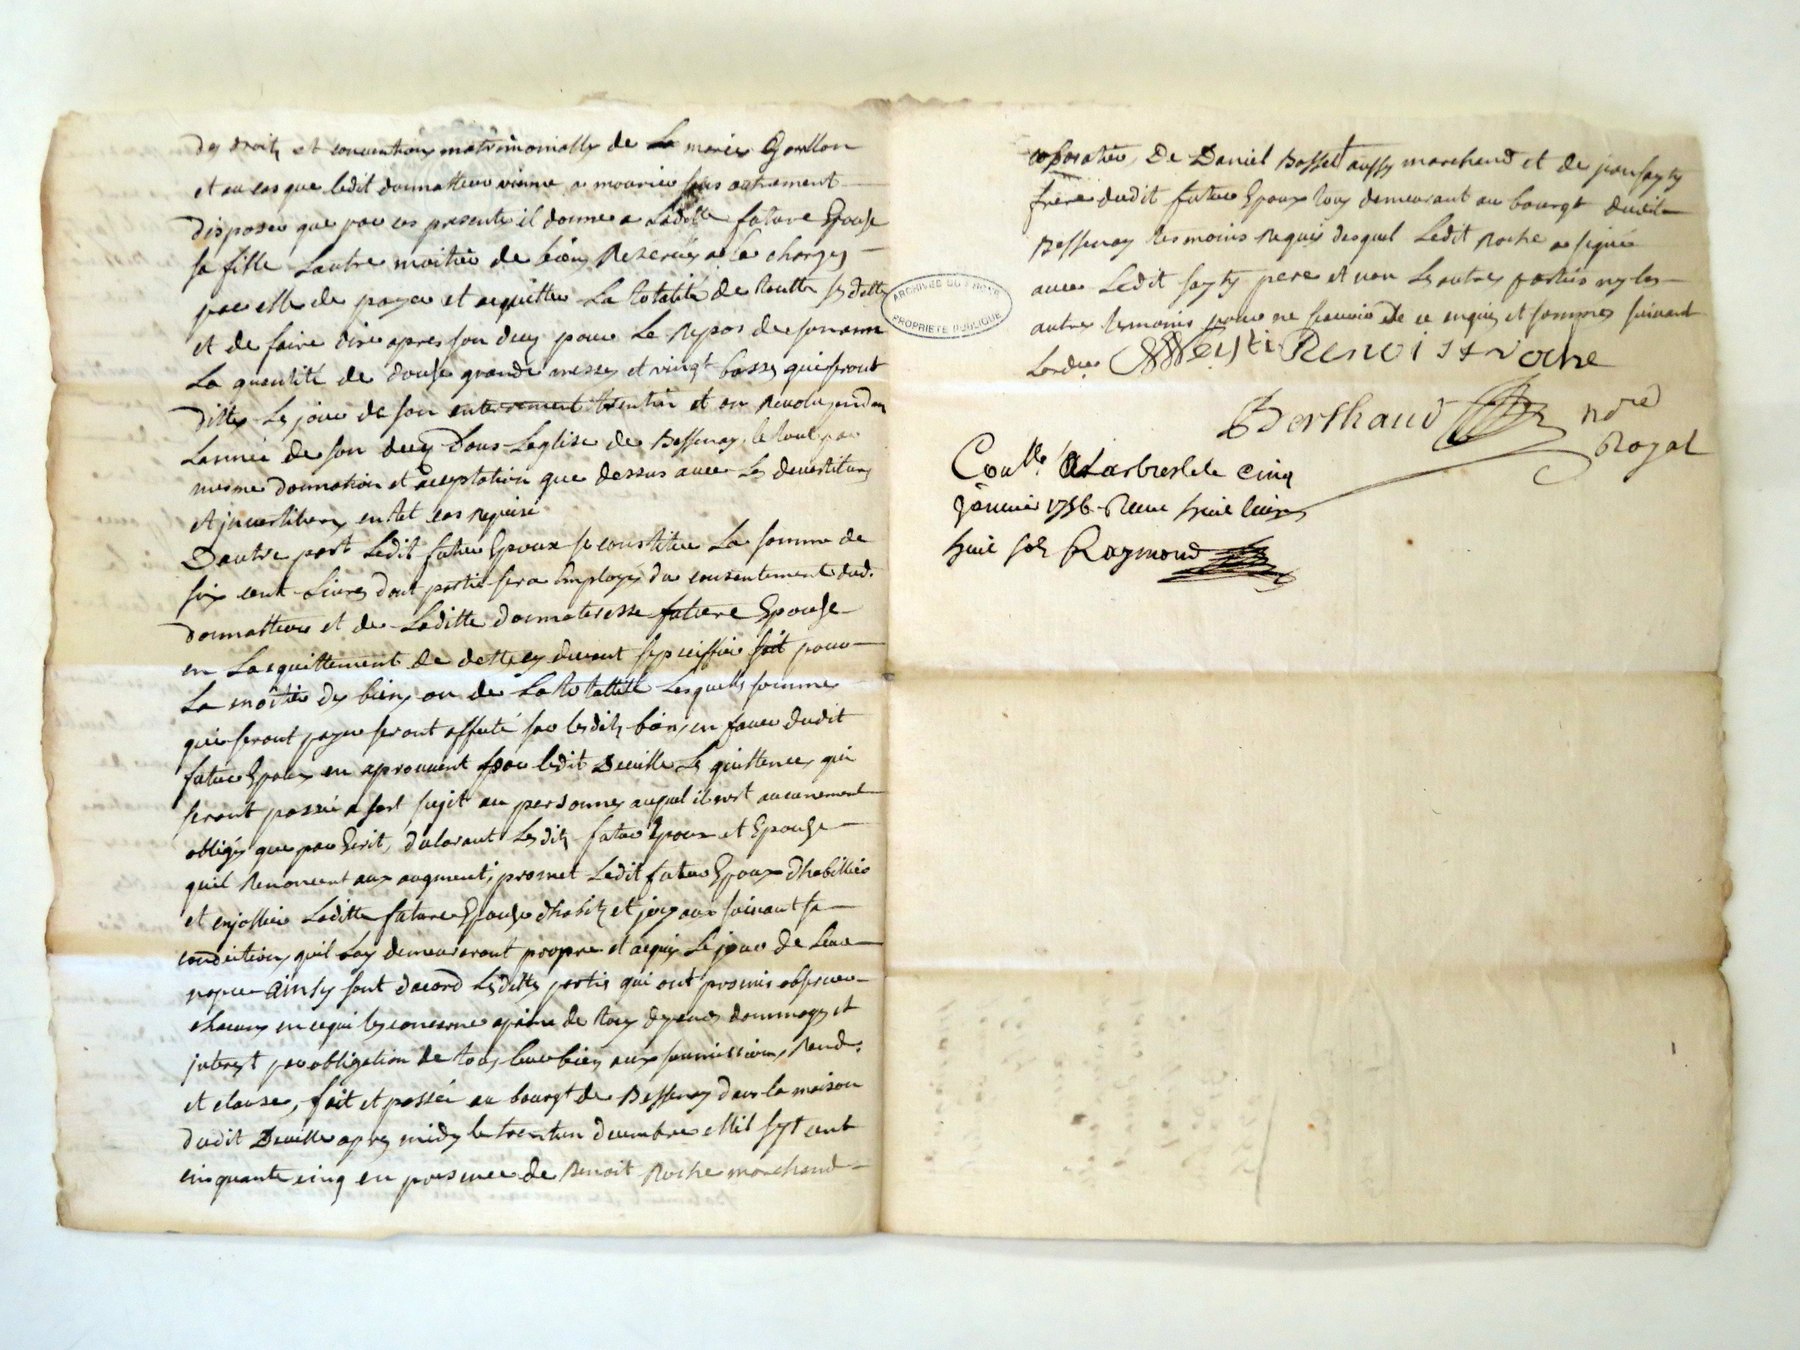 des droits et conventions matrimonialles de La marie Goullon
et au cas que ledit donnatteur vienne a mourir sans autrement
disposer que par ces presente il donne a Laditte future Epouse
sa fille Lautre moitié de biens Reservés a la charges
par elle de payer et acquitter La totalité de toutte ses dette
et de faire dire apres son deces pour Le Repos de son ame
La quentité de douse grande messes et vingt basses qui seront
dittes Le jour de son enterrement et en Revolu pendan
Lannée de son deces Dans Leglise de Bessenay, le tout par
mesme donnation et aceptation que dessus avec Les devestitures
et jnvestitures en tel cas Requise
Dautre part Ledit futur Epoux se constitue La somme de
six cent Livres dont partie sera Employé du consentement dud.
donnatteur et de Laditte donnateresse future Epouse
en Laquittement de dettes cy devant speciffiée soit pour
La moitié des biens ou de La totallité Lesquelles sommes
qui seront payer seront affecté sur lesdits biens en faveur dudit
futur Epoux en aprouvent par ledit Deville Les quittences qui
seront passée a sest sujet au personnes auquel il nest aucunement
obligés que par Ecrit, declarant Lesdits futur Epoux et Epouse
quil Renoncent aux augment, promet Ledit futur Epoux dhabillier
et enjollier Laditte future Epouse dhabits et joyaux suivant sa
condition, quil Luy demeureront propre et acquis Le jour de Leur
nopce Ainsy sont dacord Lesdittes partis qui ont promis observer
chacuns en ce qui les concerne a peine de tous depens dommages et
jnterest par obligation de tous leur biens aux soumissions, Renon.
et clause, fait et passée au bourgt de Bessenay dans la maison
dudit Deville apres midy le trentun decembre Mil sept cent
cinquante cinq en presence de Benoit Roche marchand
De Daniel Bosset aussy marchand et de jean sayty
frere dudit futur Epoux tous demeurant au bourgt dudit
Bessenay temoins Requis desquel Ledit Roche a signée
avec Ledit sayty pere et non Les autres partis ny les
autres temoins pour ne scavoir De ce enquis et sommés suivant
Lordre Benoist Roche
Berthaud nore
Royal
Conllé A Larbresle le cinq
janvier 1756 Receu huit livres
huit sols Raymond
ARCHIVES DU RHONE
PROPRIETE PUBLIQUE